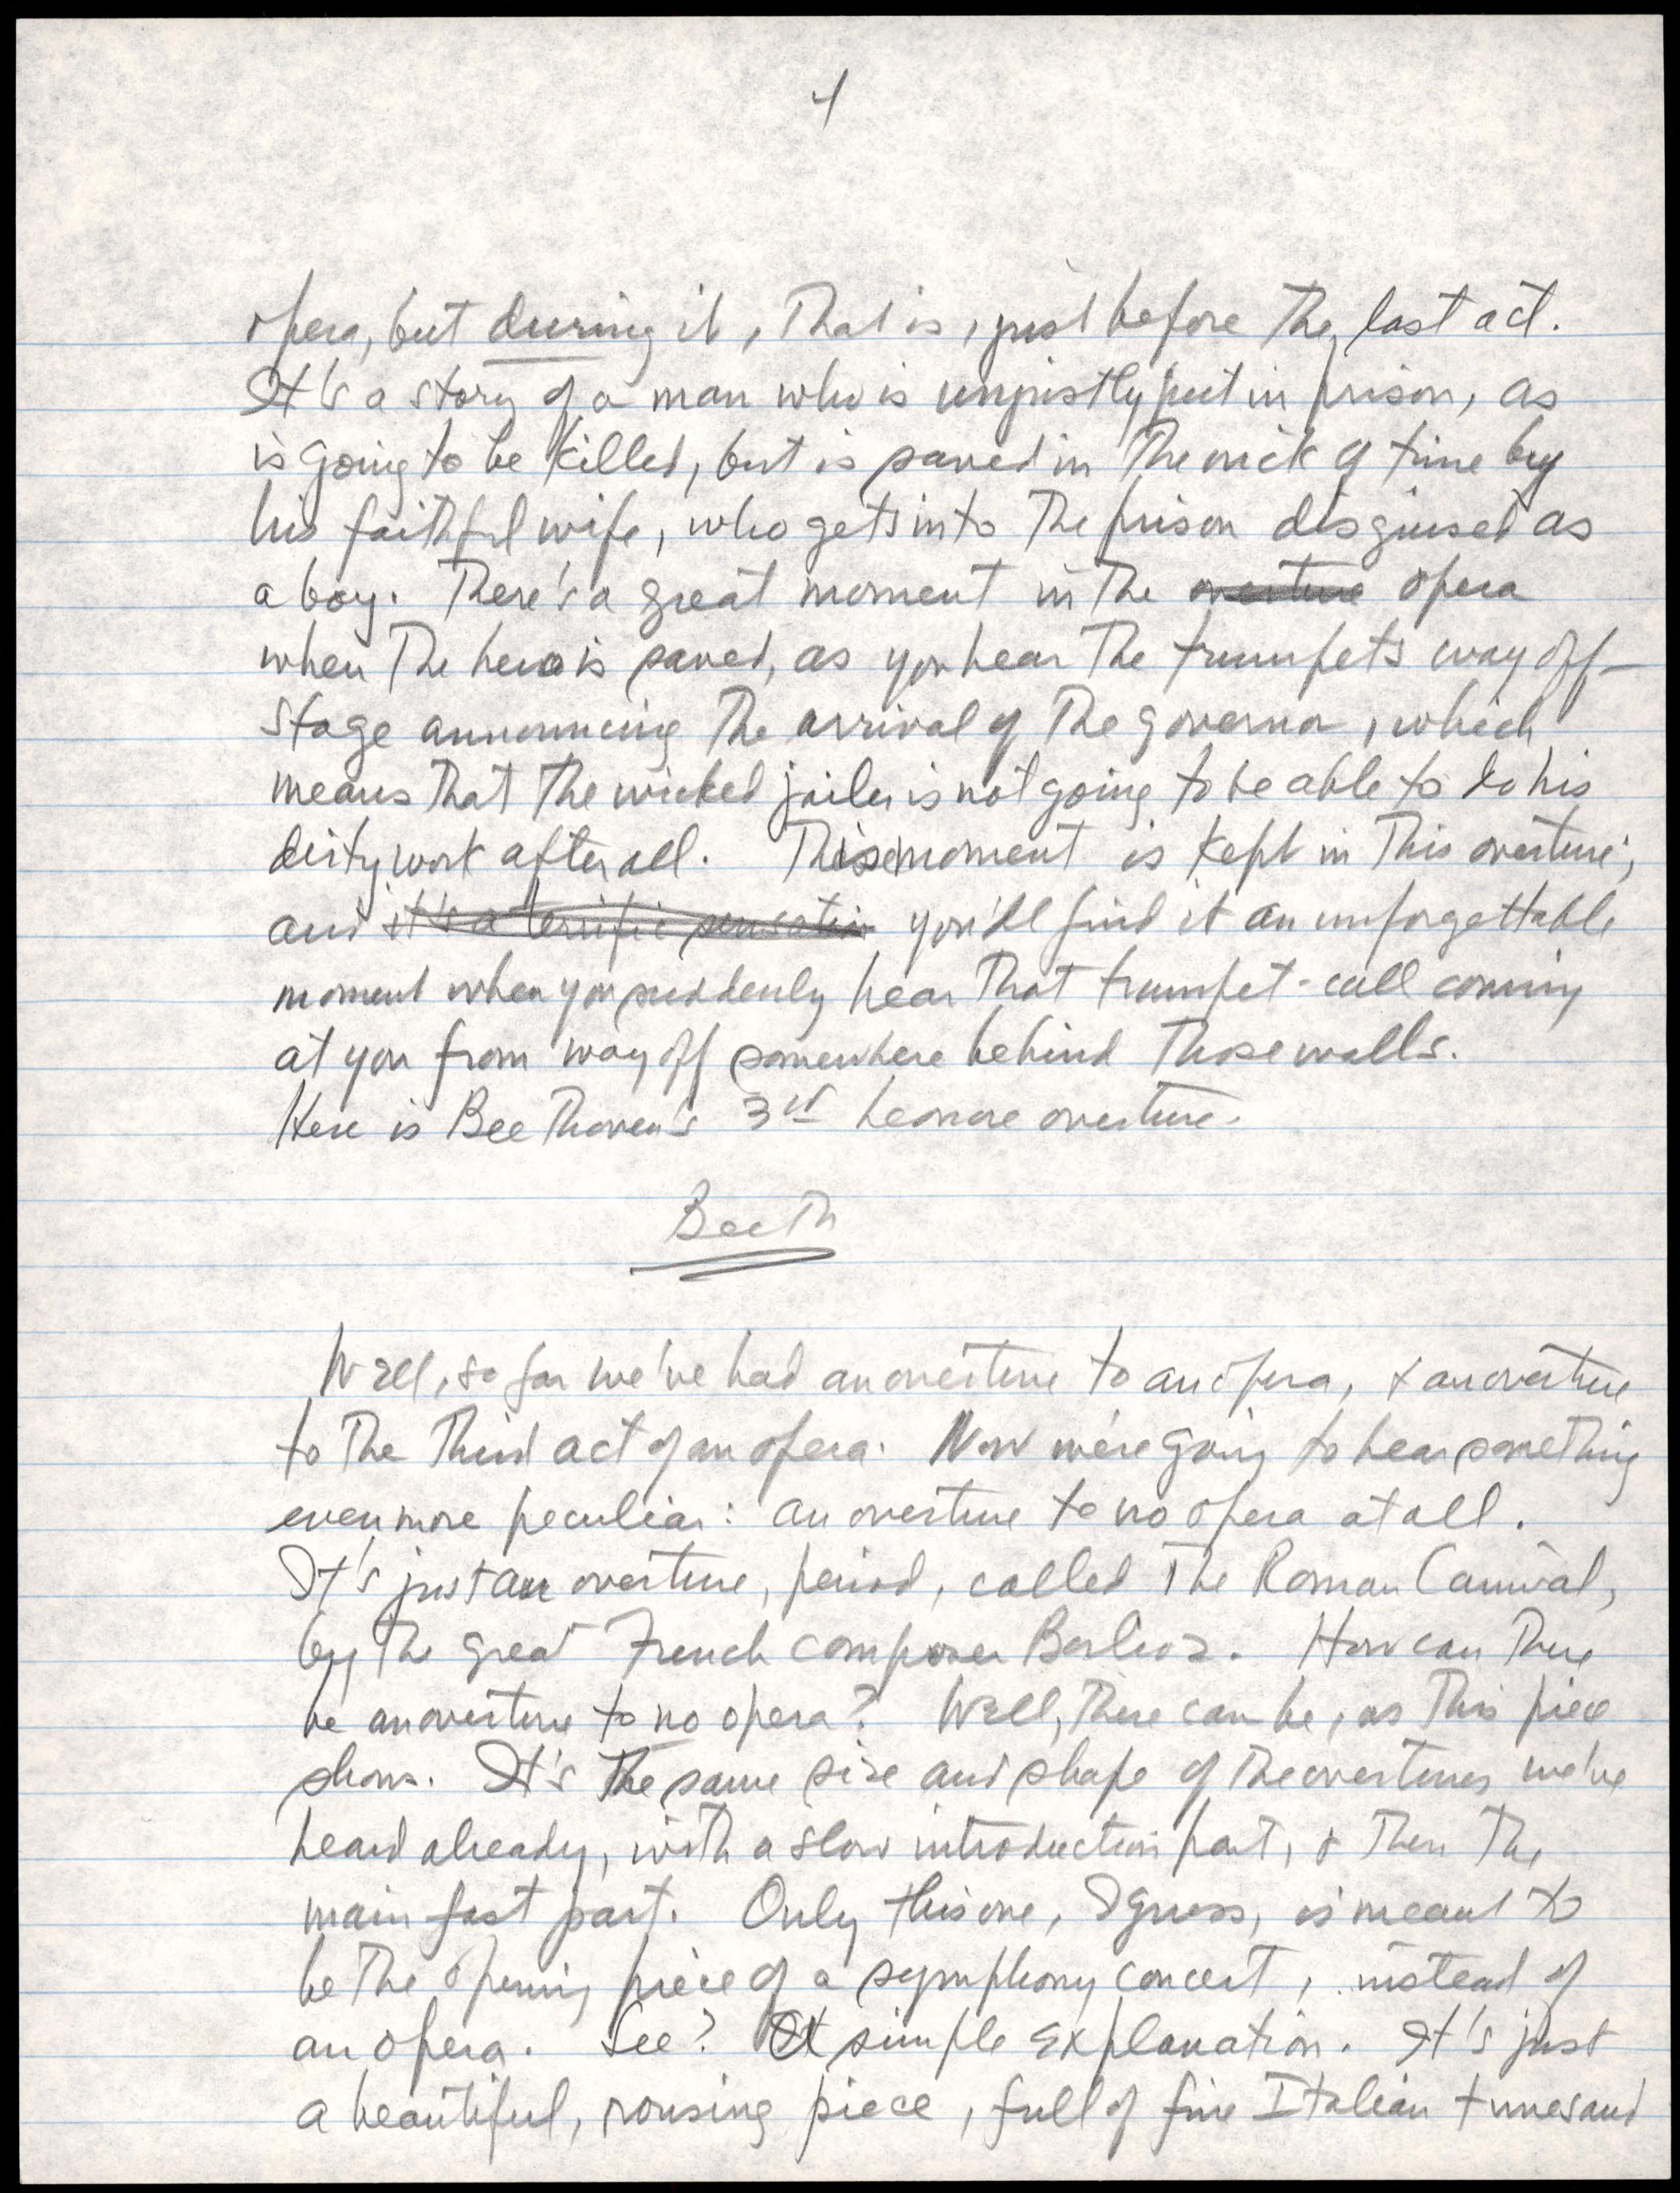 4
opera, but during it, that is, just before the last act.
It's a story of a man who is unjustly put in prison, as
is going to be killed, but is saved in the nick of time by
his faithful wife, who gets into the prison disguised as
a boy. There's a great moment in the overture opera
when the hero is saved, as you hear the trumpets way off-
stage announcing the arrival of the governor, which
means that the wicked jailer is not going to be able to do his
dirty work after all. This moment is kept in this overture;
and it's a terrific sensation you'll find it an unforgettable
moment when you suddenly hear that trumpet-call coming
at you from way off somewhere behind those walls.
Here is Beethoven's 3rd Leonore overture.
Beeth
Well, so far we've had an overture to an opera, & an overture
to the third act of an opera. Now we're going to hear something
even more peculiar: an overture to no opera at all.
It's just an overture, period, called The Roman Carnival,
by the great French composer Berlioz. How can there
be an overture to no opera? Well, there can be, as this piece
shows. It's the same size and shape of the overtures we've
heard already, with a slow introduction part, & then the
main fast part. Only this one, I guess, is meant to
be the opening piece of a symphony concert, instead of
an opera. See? A simple explanation. It's just
a beautiful, rousing piece, full of fine Italian tunes and